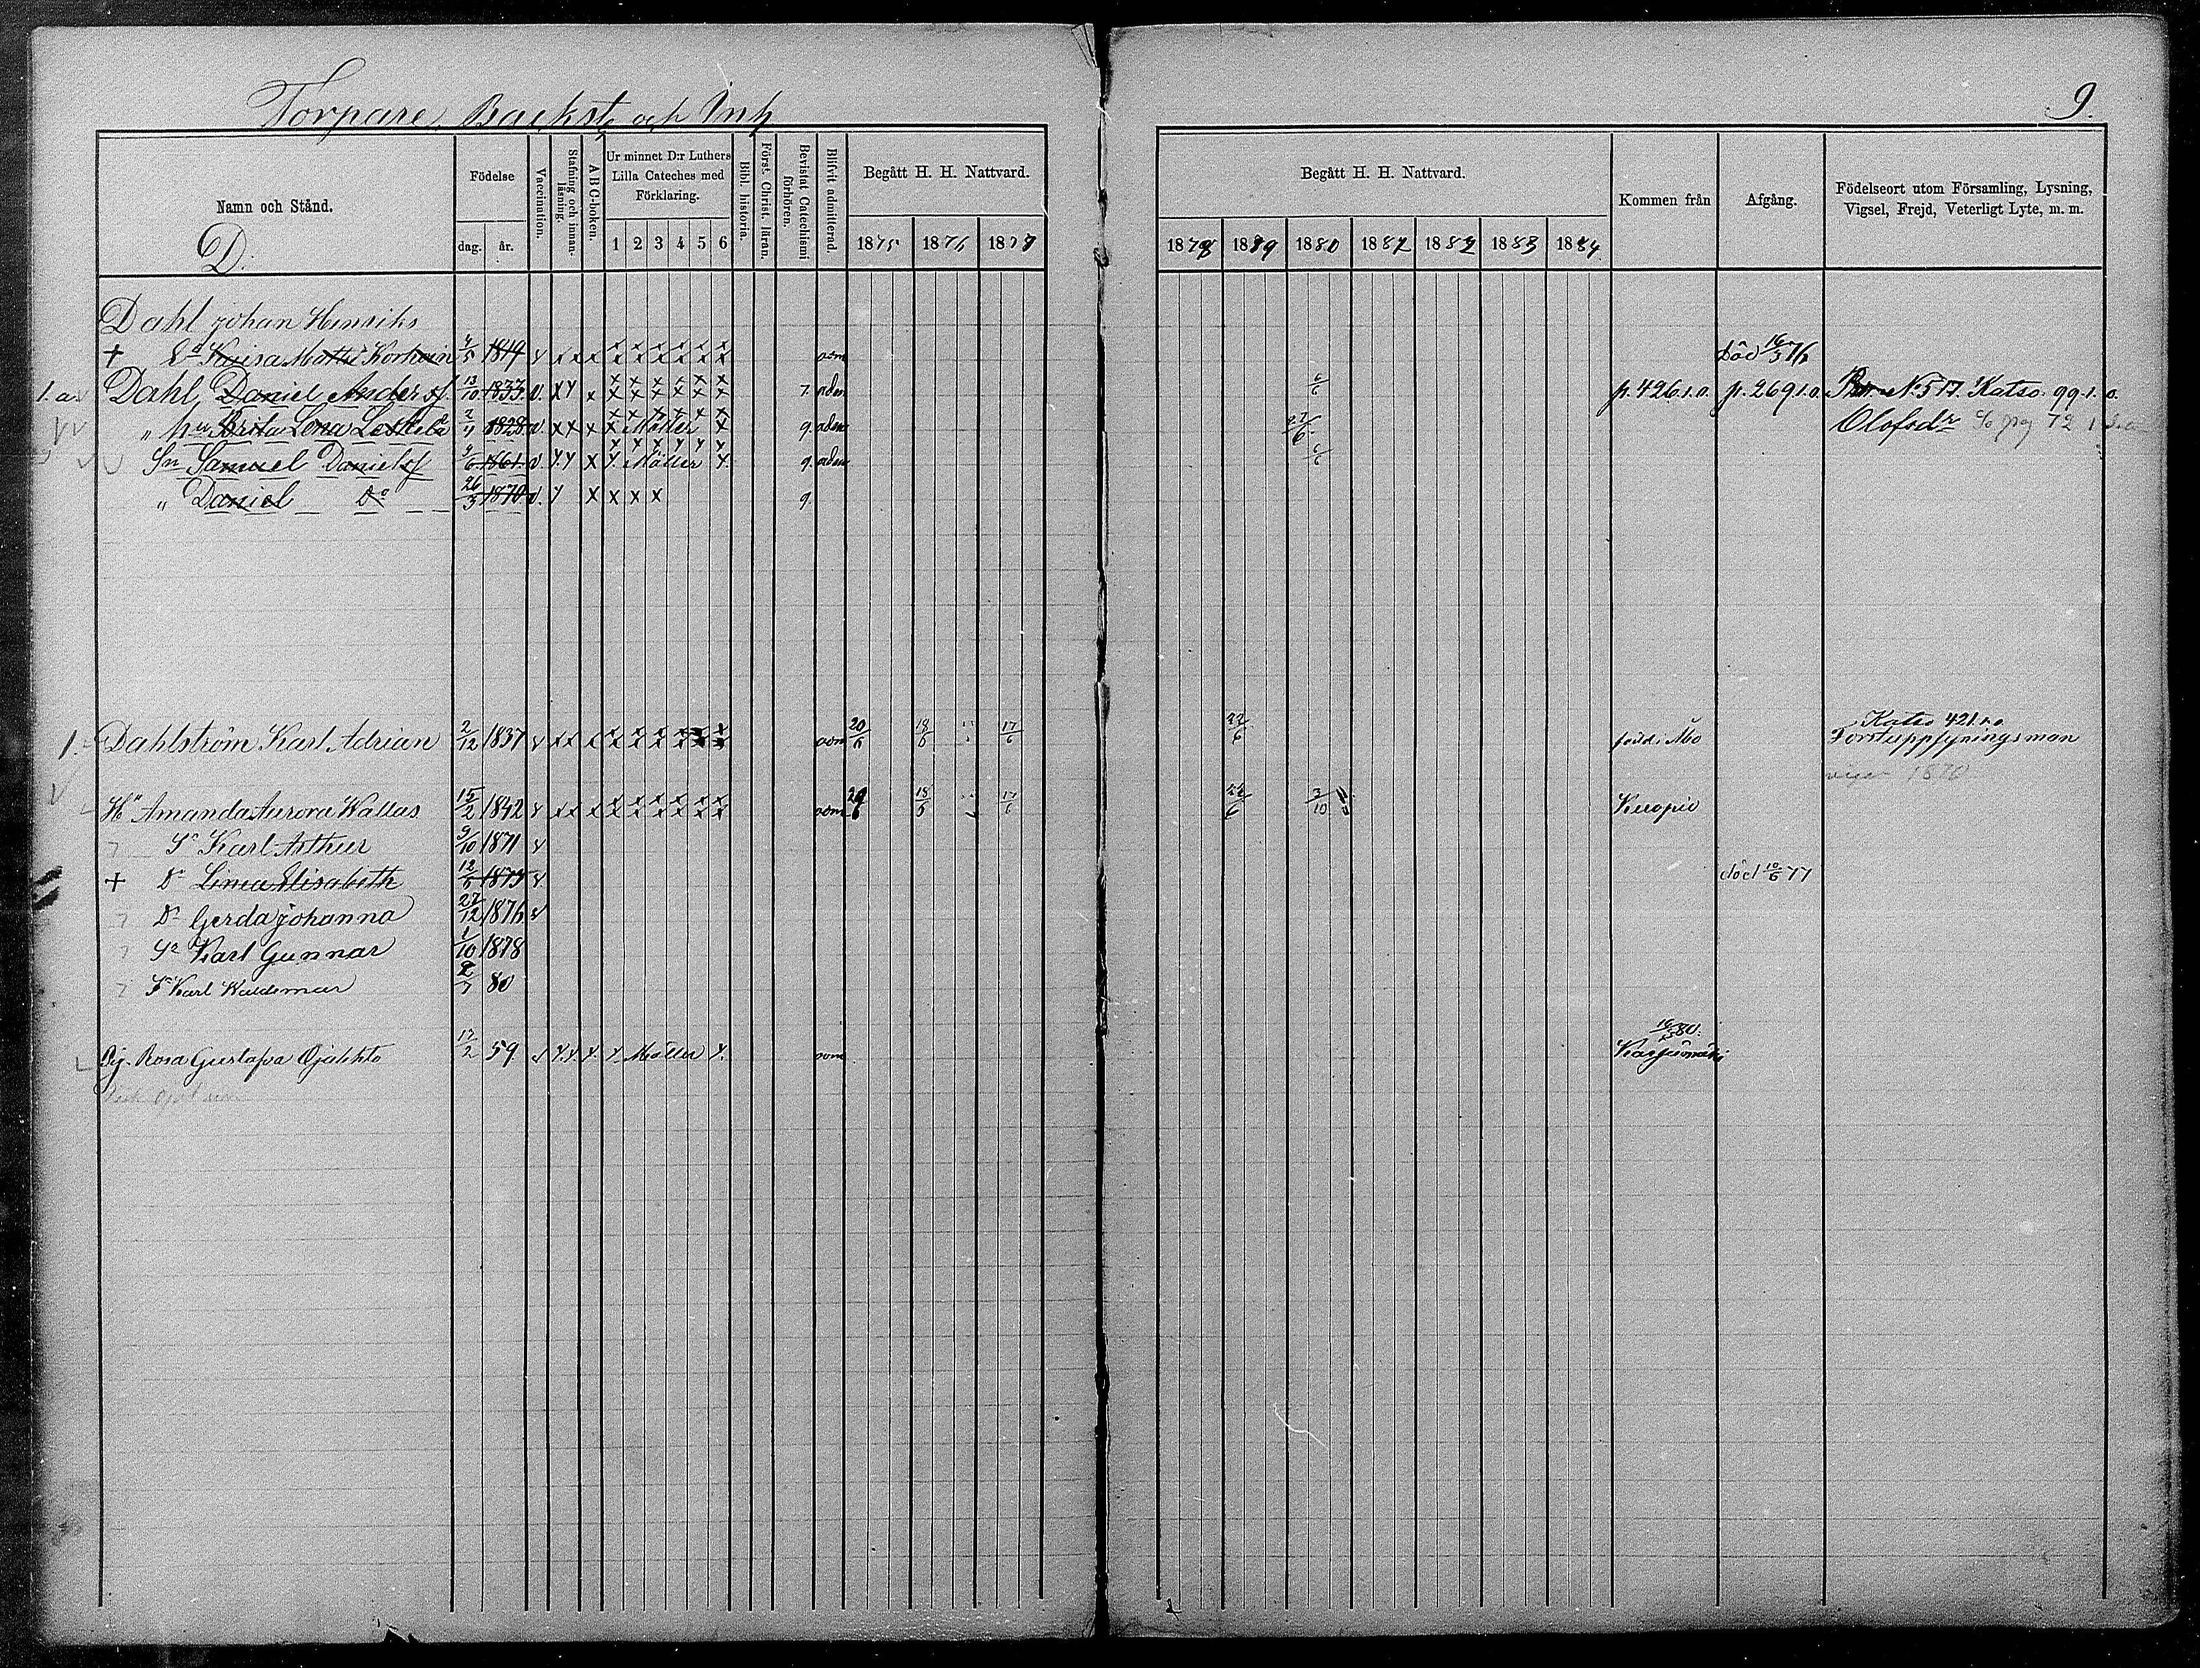 Torpare, Backst. och Inh.
9.
Namn och Stånd.
D.
Födelse
dag. år.
Vaccination.
Stafning och innan-läsning.
A B C-boken.
Ur minnet D:r Luthers Lilla Cateches med Förklaring.
1 2 3 4 5 6
Bibl. historia.
Först. Christ. läran.
Bevistat Catechismi förhören.
Blifvit admitterad.
Begått H. H. Nattvard.
1875 1876 1877
Begått H. H. Nattvard.
1878 1879 1880 1881 1882 1883 1884
Kommen från
Afgång.
Födelseort utom Församling, Lysning, Vigsel, Frejd, Veterligt Lyte, m. m.
Dahl Johan Henriks
+ Kaisa 4/5 1819 v x x x adm Död 16/3 76
1.a. Dahl Daniel Anders 13/10 1833 v. x x x 7. adm 6/6 p. 426.1.o. p. 269 1.o. No 517. Katso. 99.1.o.
" Brita Lena 2/11 1828 v x x x x Möller x 9. adm 27/6 Olofsdr 72
Sn Samuel Daniels 9/6 1861 v x x x x Möller x 9. adm 6/6
" Daniel Do 26/3 1870 v. x x x x x 9.
Katso 421
1. Dahlström Karl Adrian 2/12 1837 v x x x adm 20/6 18/6 17/6 22/6 född i Åbo Forstuppsyningsman
1870
Hu Amanda Aurora Wallas 15/2 1842 v x x x adm 20/6 18/6 17/6 22/6 3/10 Kuopio
Sn Karl Arthur 9/10 1871 v
+ Dr Linea Elisabeth 12/5 1873 v död 10/6 77
Dr Gerda Johanna 27/12 1876 v
Sn Karl Gunnar 1/10 1878
Sn Karl Waldemar 2/7 80
16/3 80.
Pig. Rosa Gustafva Ojalehto 17/2 59. v x. x. x. x. Möller x. adm